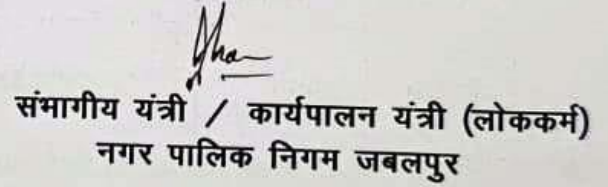 संभागीय यंत्री / कार्यपालन यंत्री (लोककर्म)
नगर पालिक निगम जबलपुर